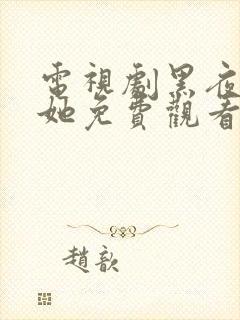 電視劇黑夜
她免費觀看
趙歆